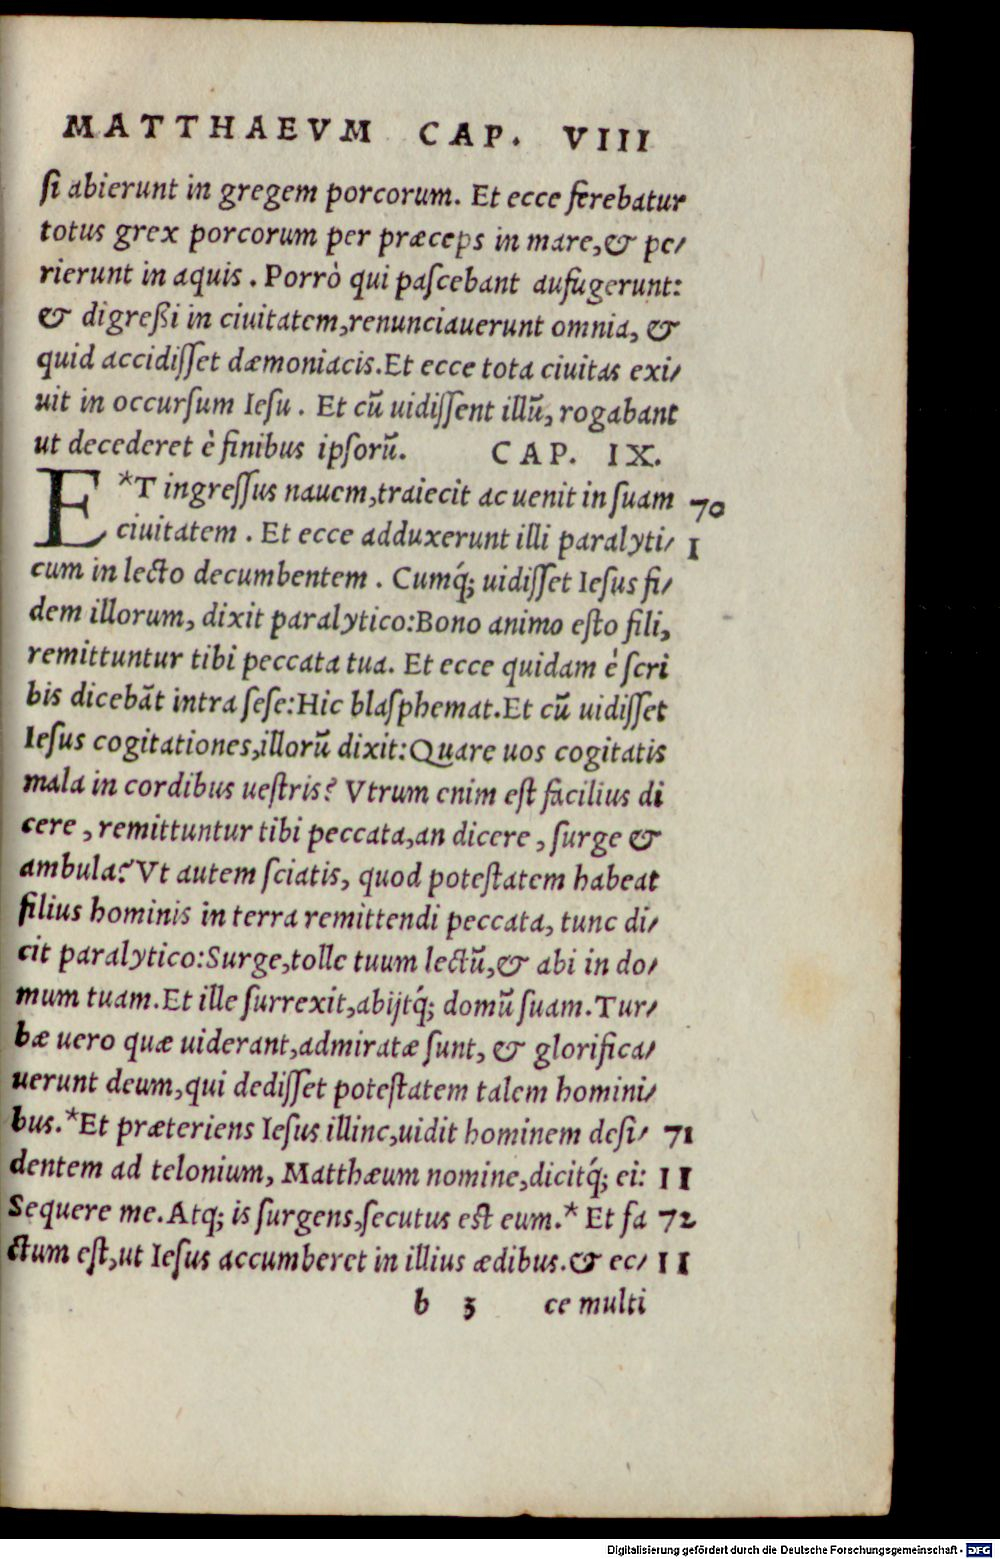 MATTHAEVM CAP. VIII
ſi abierunt in gregem porcorum. Et ecce ferebatur
totus grex porcorum per præceps in mare,& pe/
rierunt in aquis. Porrò qui paſcebant aufugerunt:
& digreßi in ciuitatem,renunciauerunt omnia, &
quid accidiſſet dæmoniacis.Et ecce tota ciuitas exi/
uit in occurſum Ieſu. Et cū uidiſſent illū, rogabant
ut decederet è finibus ipſorū. CAP. IX.
E*T ingreſſus nauem,traiecit ac uenit in ſuam 70
ciuitatem. Et ecce adduxerunt illi paralyti/ I
cum in lecto decumbentem. Cumq́; uidiſſet Ieſus fi/
dem illorum, dixit paralytico:Bono animo eſto fili,
remittuntur tibi peccata tua. Et ecce quidam è ſcri
bis dicebāt intra ſeſe:Hic blaſphemat.Et cū uidiſſet
Ieſus cogitationes,illorū dixit:Quare uos cogitatis
mala in cordibus ueſtris? Vtrum enim eſt facilius di
cere, remittuntur tibi peccata,an dicere, ſurge &
ambula? Vt autem ſciatis, quod poteſtatem habeat
filius hominis in terra remittendi peccata, tunc di/
cit paralytico:Surge,tolle tuum lectū,& abi in do/
mum tuam.Et ille ſurrexit,abijtq́; domū ſuam.Tur/
bæ uero quæ uiderant,admiratæ ſunt, & glorifica/
uerunt deum,qui dediſſet poteſtatem talem homini/
bus.*Et præteriens Ieſus illinc,uidit hominem deſi/ 71
dentem ad telonium, Matthæum nomine,dicitq́; ei: II
Sequere me.Atq; is ſurgens,ſecutus eſt eum.* Et fa 72
ctum eſt,ut Ieſus accumberet in illius ædibus.& ec/ II
b 3 ce multi
Digitalisierung gefördert durch die Deutsche Forschungsgemeinschaft - DFG